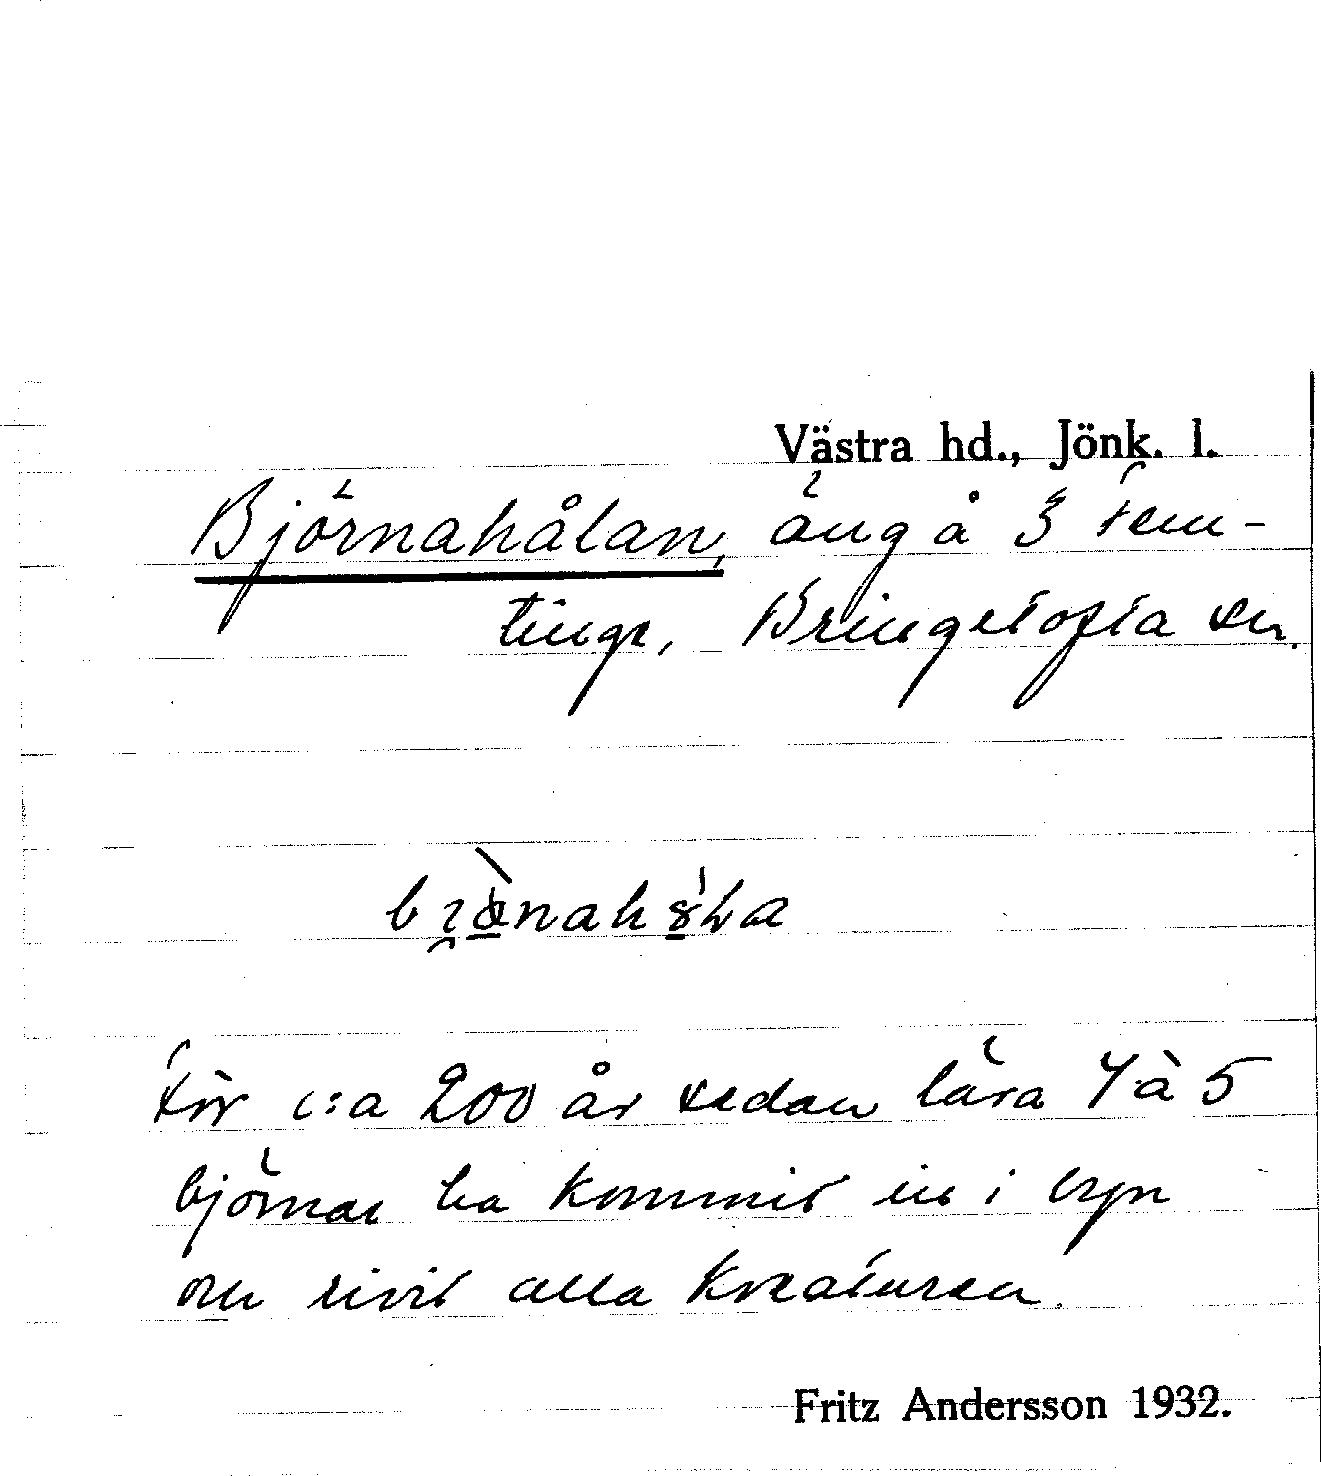 Västra hd., Jönk. l.
Björnahålan, äng å 3 Fem-
tinge, Bringetofta sn.
För c:a 200 år sedan lära 4 à 5
björnar ha kommit in i byn
och rivit alla kreaturen.
Fritz Andersson 1932.